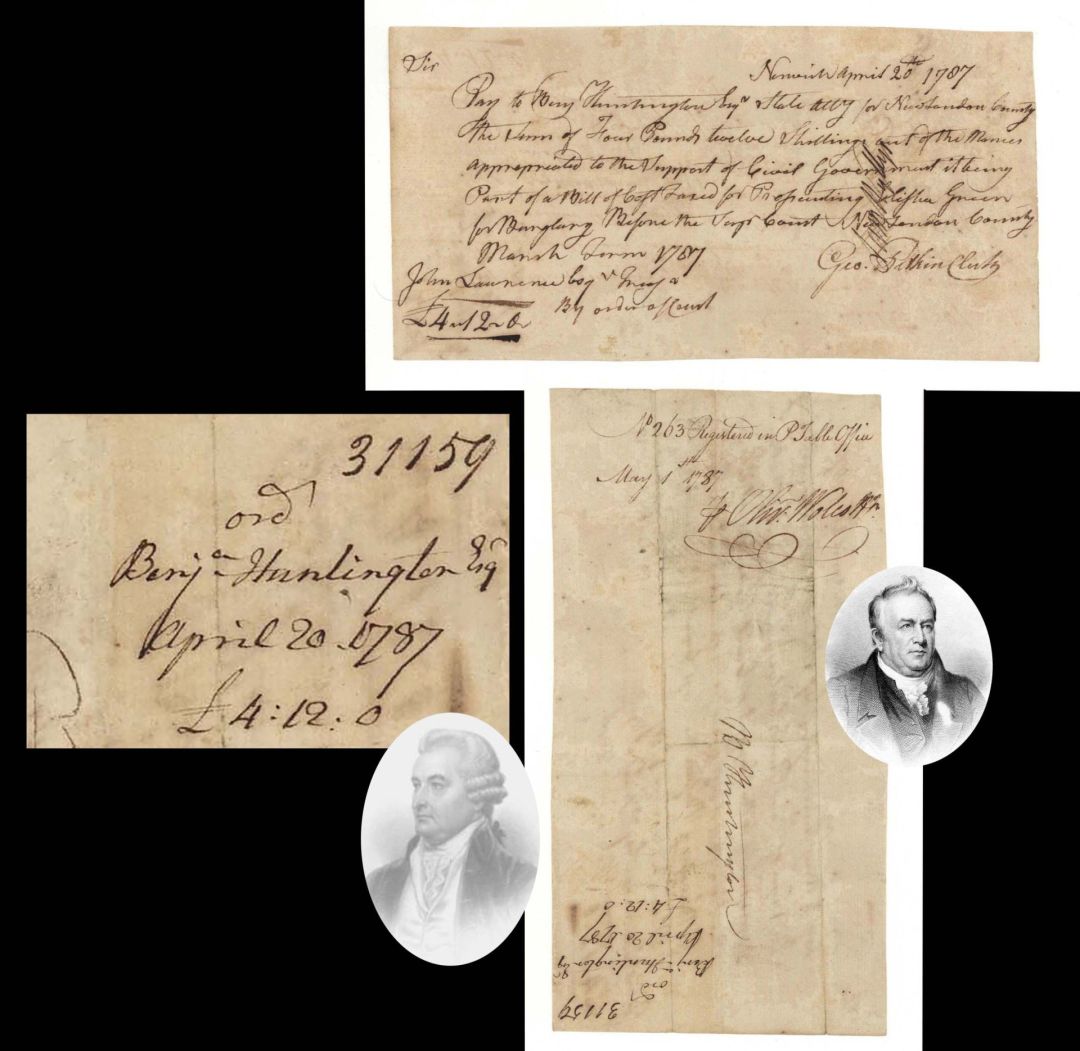 Sir
Norwich April 20th 1787
Pay to Benj Huntington Esqr State Atty for New London County
the Sum of Four Pounds twelve Shillings out of the Monies
appropriated to the Support of Civil Government it being
Part of a Bill of Cost Taxed for Prosecuting Elisha Green
for Burglary Before the Supr Court New London County
March Term 1787
Geo. Pitkin Clerk
John Lawrence Esqr Treasr
By order of Court
£4 12 0
31159
ord
Benja Huntington Esq
April 20. 1787
£4:12:0
No 263 Registered in P Table Office
May 1st 1787
Olivr Wolcott Jr.
B Huntington
£4:12:0
April 20. 1787
Benja Huntington Esq
ord
31159